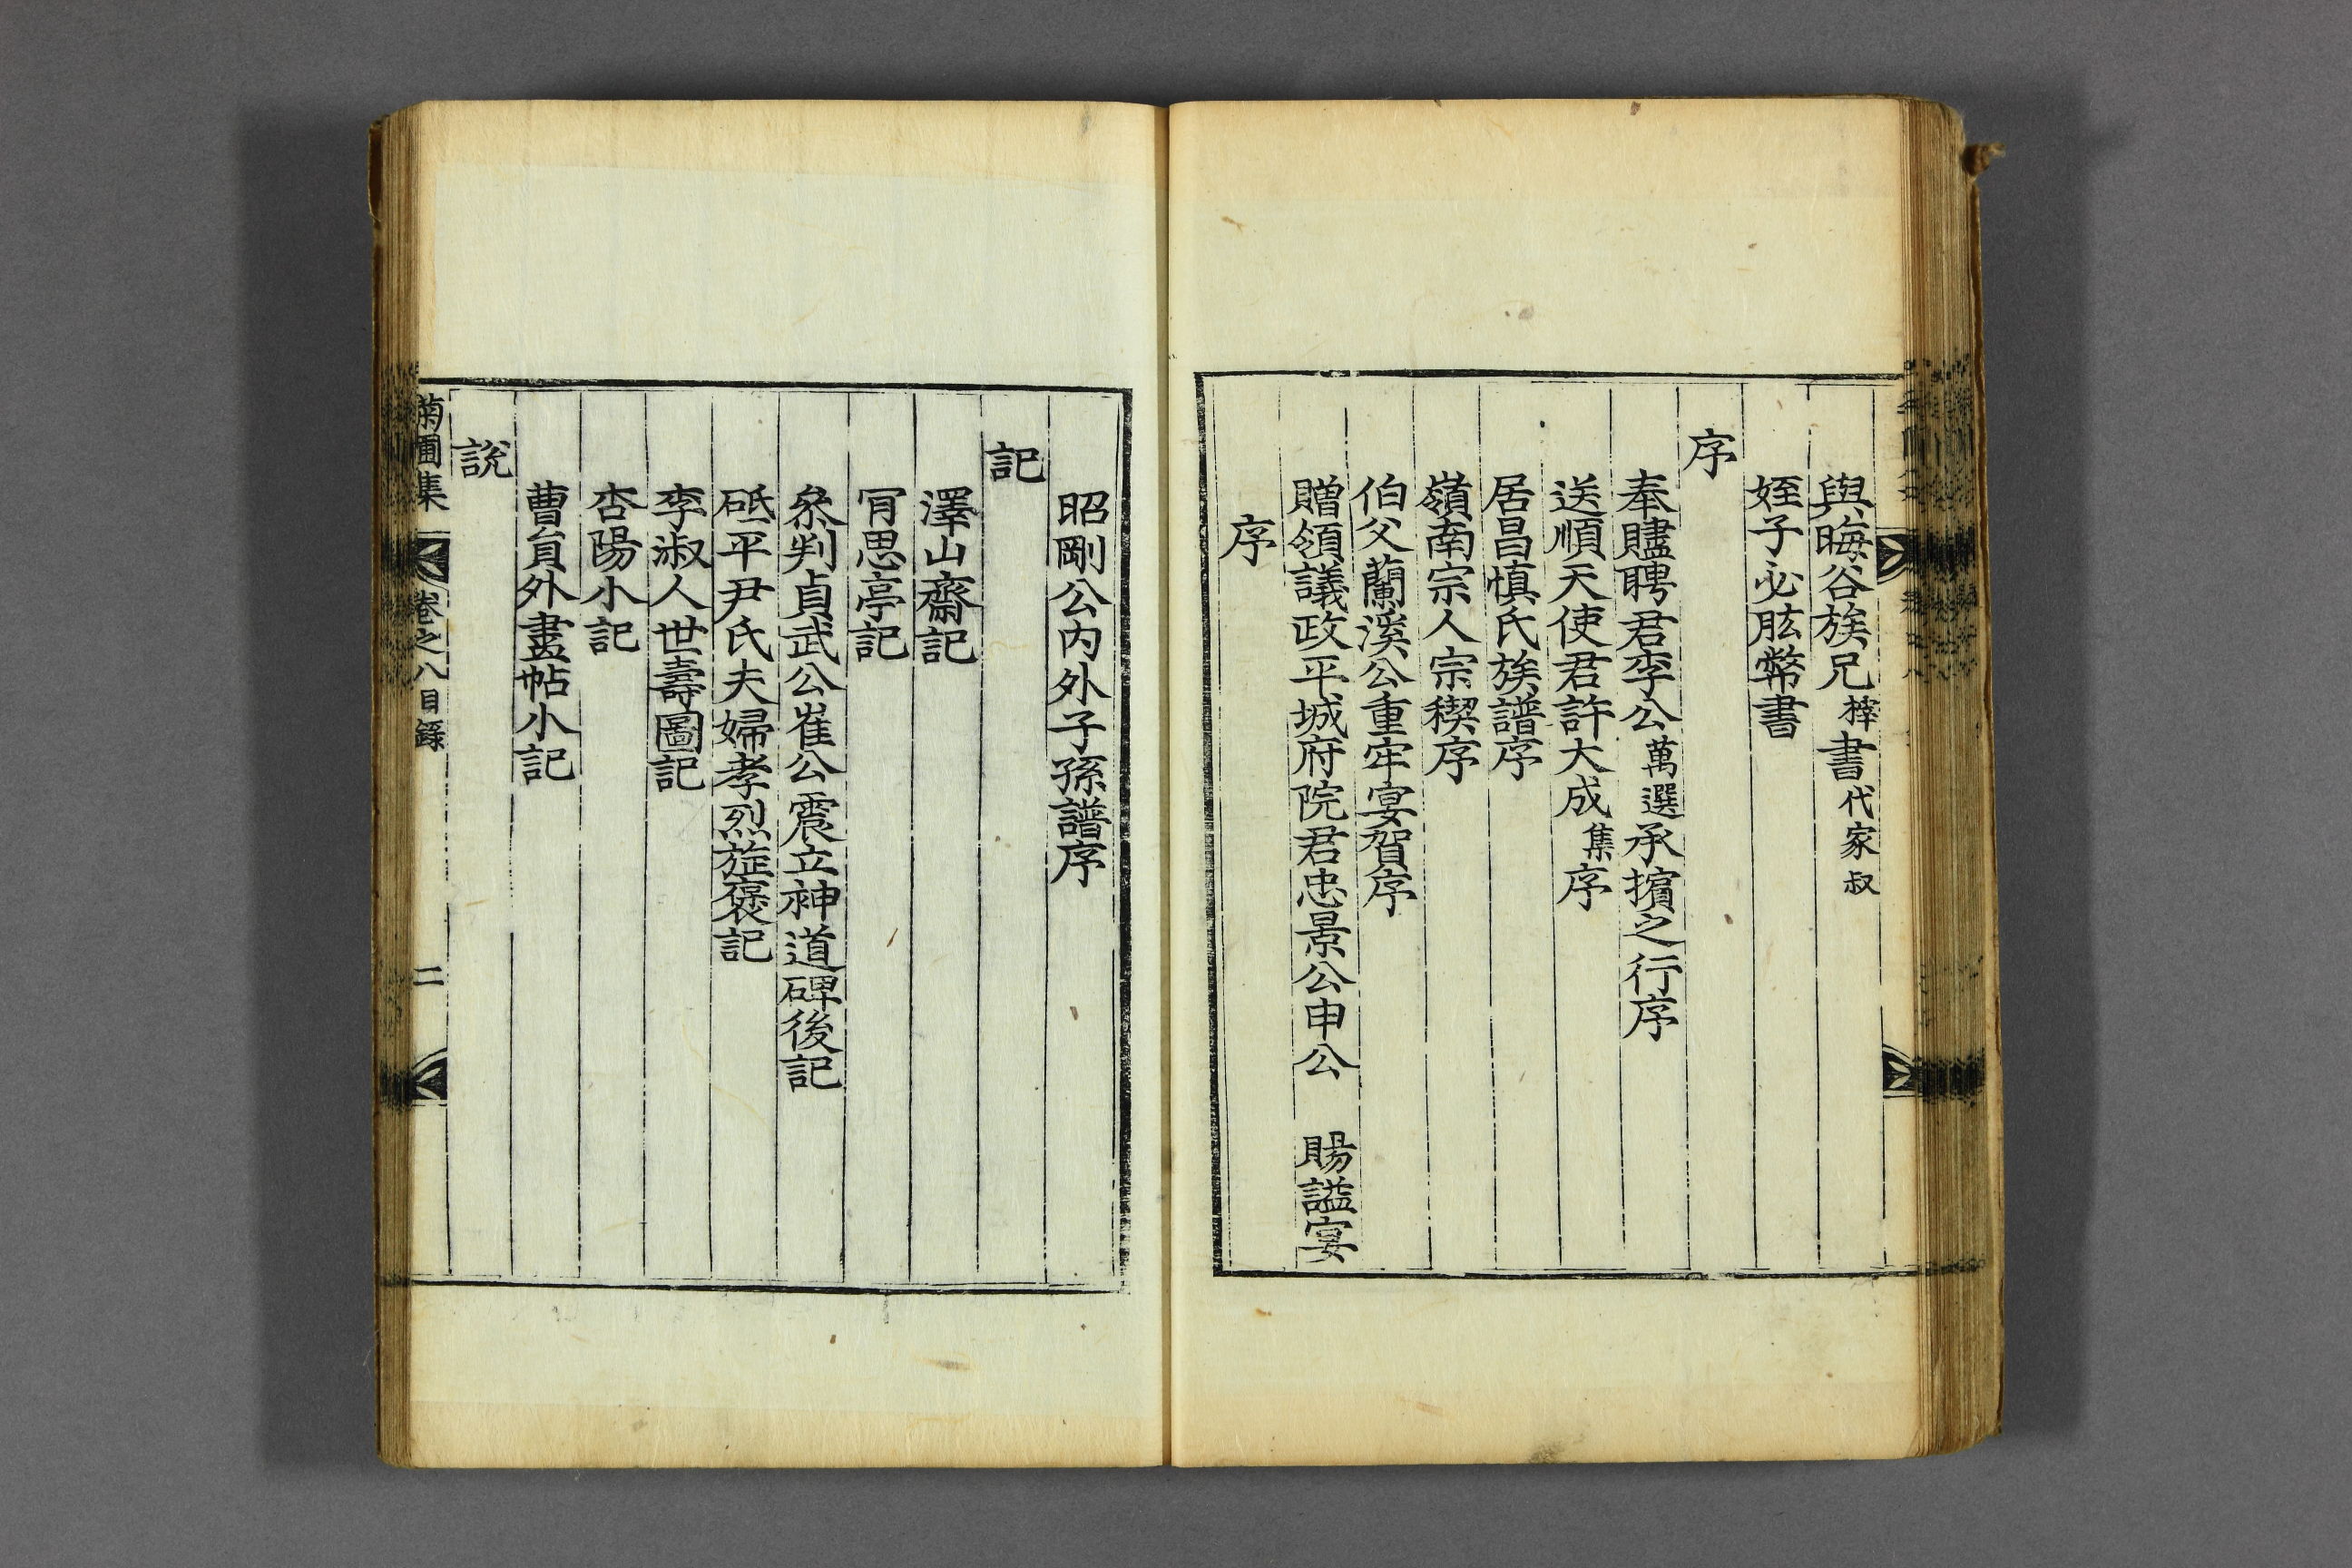 與晦谷族兄㭉書代家叔
姪子必肱幣書
序
奉贐聘君李公萬選承擯之行序
送順天使君許大成集序
居昌愼氏族譜序
嶺南宗人宗稧序
伯父蘭溪公重牢宴賀序
贈領議政平城府院君忠景公申公 賜謚宴
序
昭剛公内外子孫譜序
記
澤山齋記
肎思亭記
叅判貞武公崔公震立神道碑後記
砥平尹氏夫婦孝烈㫌褒記
李淑人世壽圖記
杏陽小記
曹員外畫帖小記
說
菊圃集 卷之八目錄 二